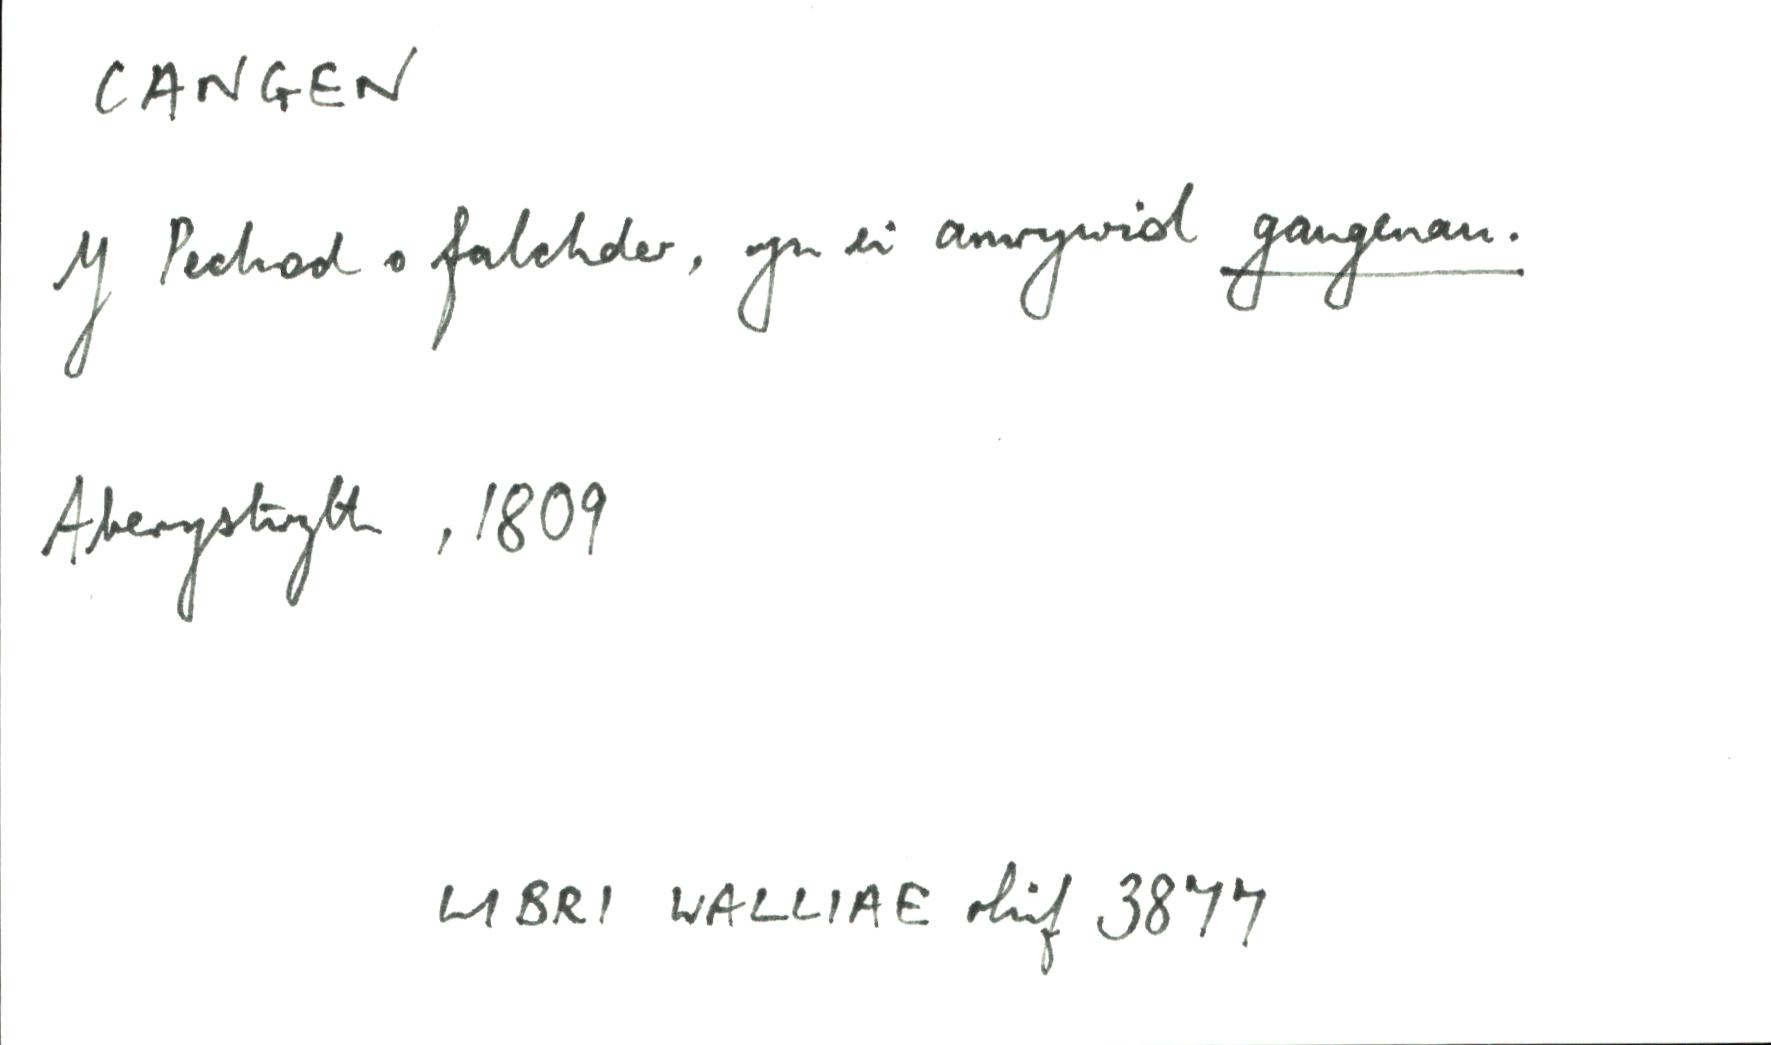 CANGEN
Y Pechod o falchder, yn ei amrywiol gangenau.
Aberystwyth, 1809
LIBRI WALLIAE rhif 3877